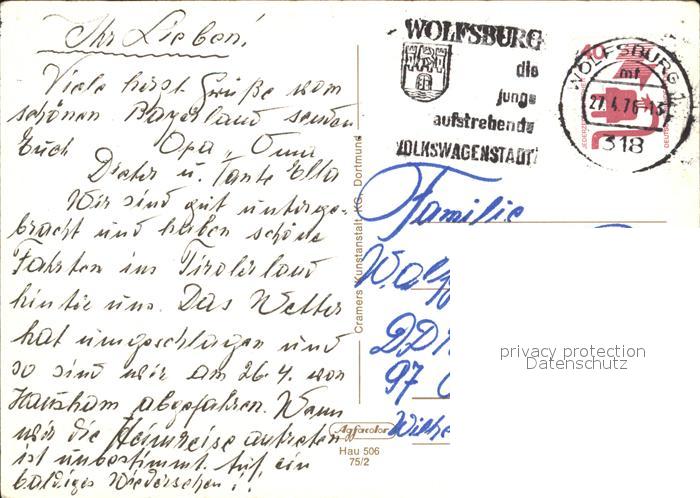 Ihr Lieben!
Viele herzl. Grüße vom
schönen Bayerland senden
Euch Opa, Oma
Dieter u. Tante Ella
Wir sind gut unterge-
bracht und haben schöne
Fahrten ins Tirolerland
hinter uns. Das Wetter
hat umgeschlagen und
so sind wir am 26.4. von
Hausham abgefahren. Wann
wir die Heimreise antreten
ist unbestimmt. Auf ein
baldiges Wiedersehen!!
WOLFSBURG
die
junge
aufstrebende
VOLKSWAGENSTADT
WOLFSBURG 1
mf
27.4.76-13
318
40
JEDERZEIT
DEUTSCHE
Cramers Kunstanstalt KG, Dortmund
Familie
DDR
97
privacy protection
Datenschutz
Agfacolor
Hau 506
75/2